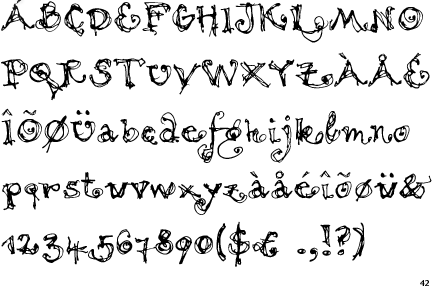 ABCDEFGHIJKLMNO
PQRSTUVWXYZÀÅÉ
ÎÕØÜabcdefghijklmno
pqrstuvwxyzàåéîõøü&
1234567890($€ .,!?)
42